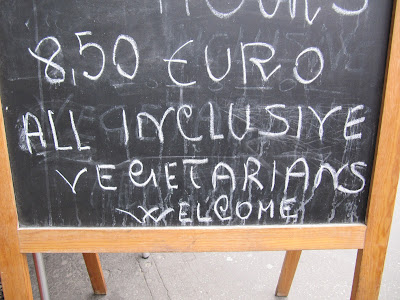 HOURS
8,50 EURO
ALL INCLUSIVE
VEGETARIANS
WELCOME